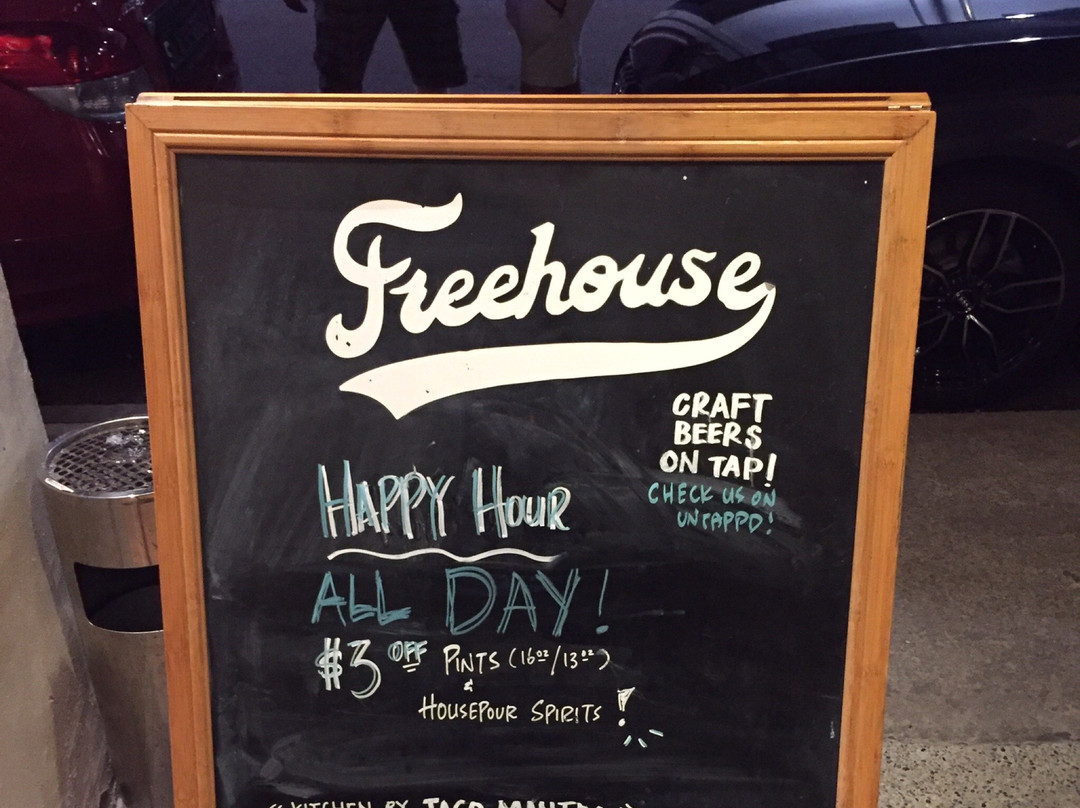 Freehouse
CRAFT
BEERS
ON TAP!
CHECK US ON
UNTAPPD!
HAPPY HOUR
ALL DAY!
$3 OFF PINTS (16oz/13oz)
&
HOUSEPOUR SPIRITS!
"KITCHEN BY TACO